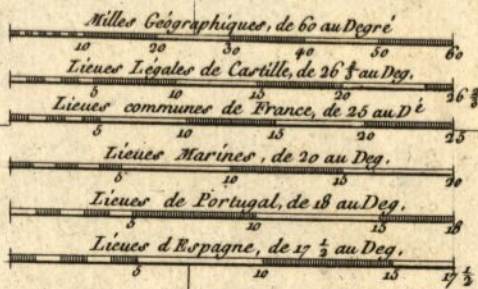 Milles Géographiques, de 60 au Degré
10 20 30 40 50 60
Lieues Légales de Castille, de 26 2/3 au Deg.
5 10 15 20 26 2/3
Lieues communes de France, de 25 au Dé
5 10 15 20 25
Lieues Marines, de 20 au Deg.
5 10 15 20
Lieues de Portugal, de 18 au Deg.
5 10 15 18
Lieues d'Espagne, de 17 1/2 au Deg.
5 10 15 17 1/2